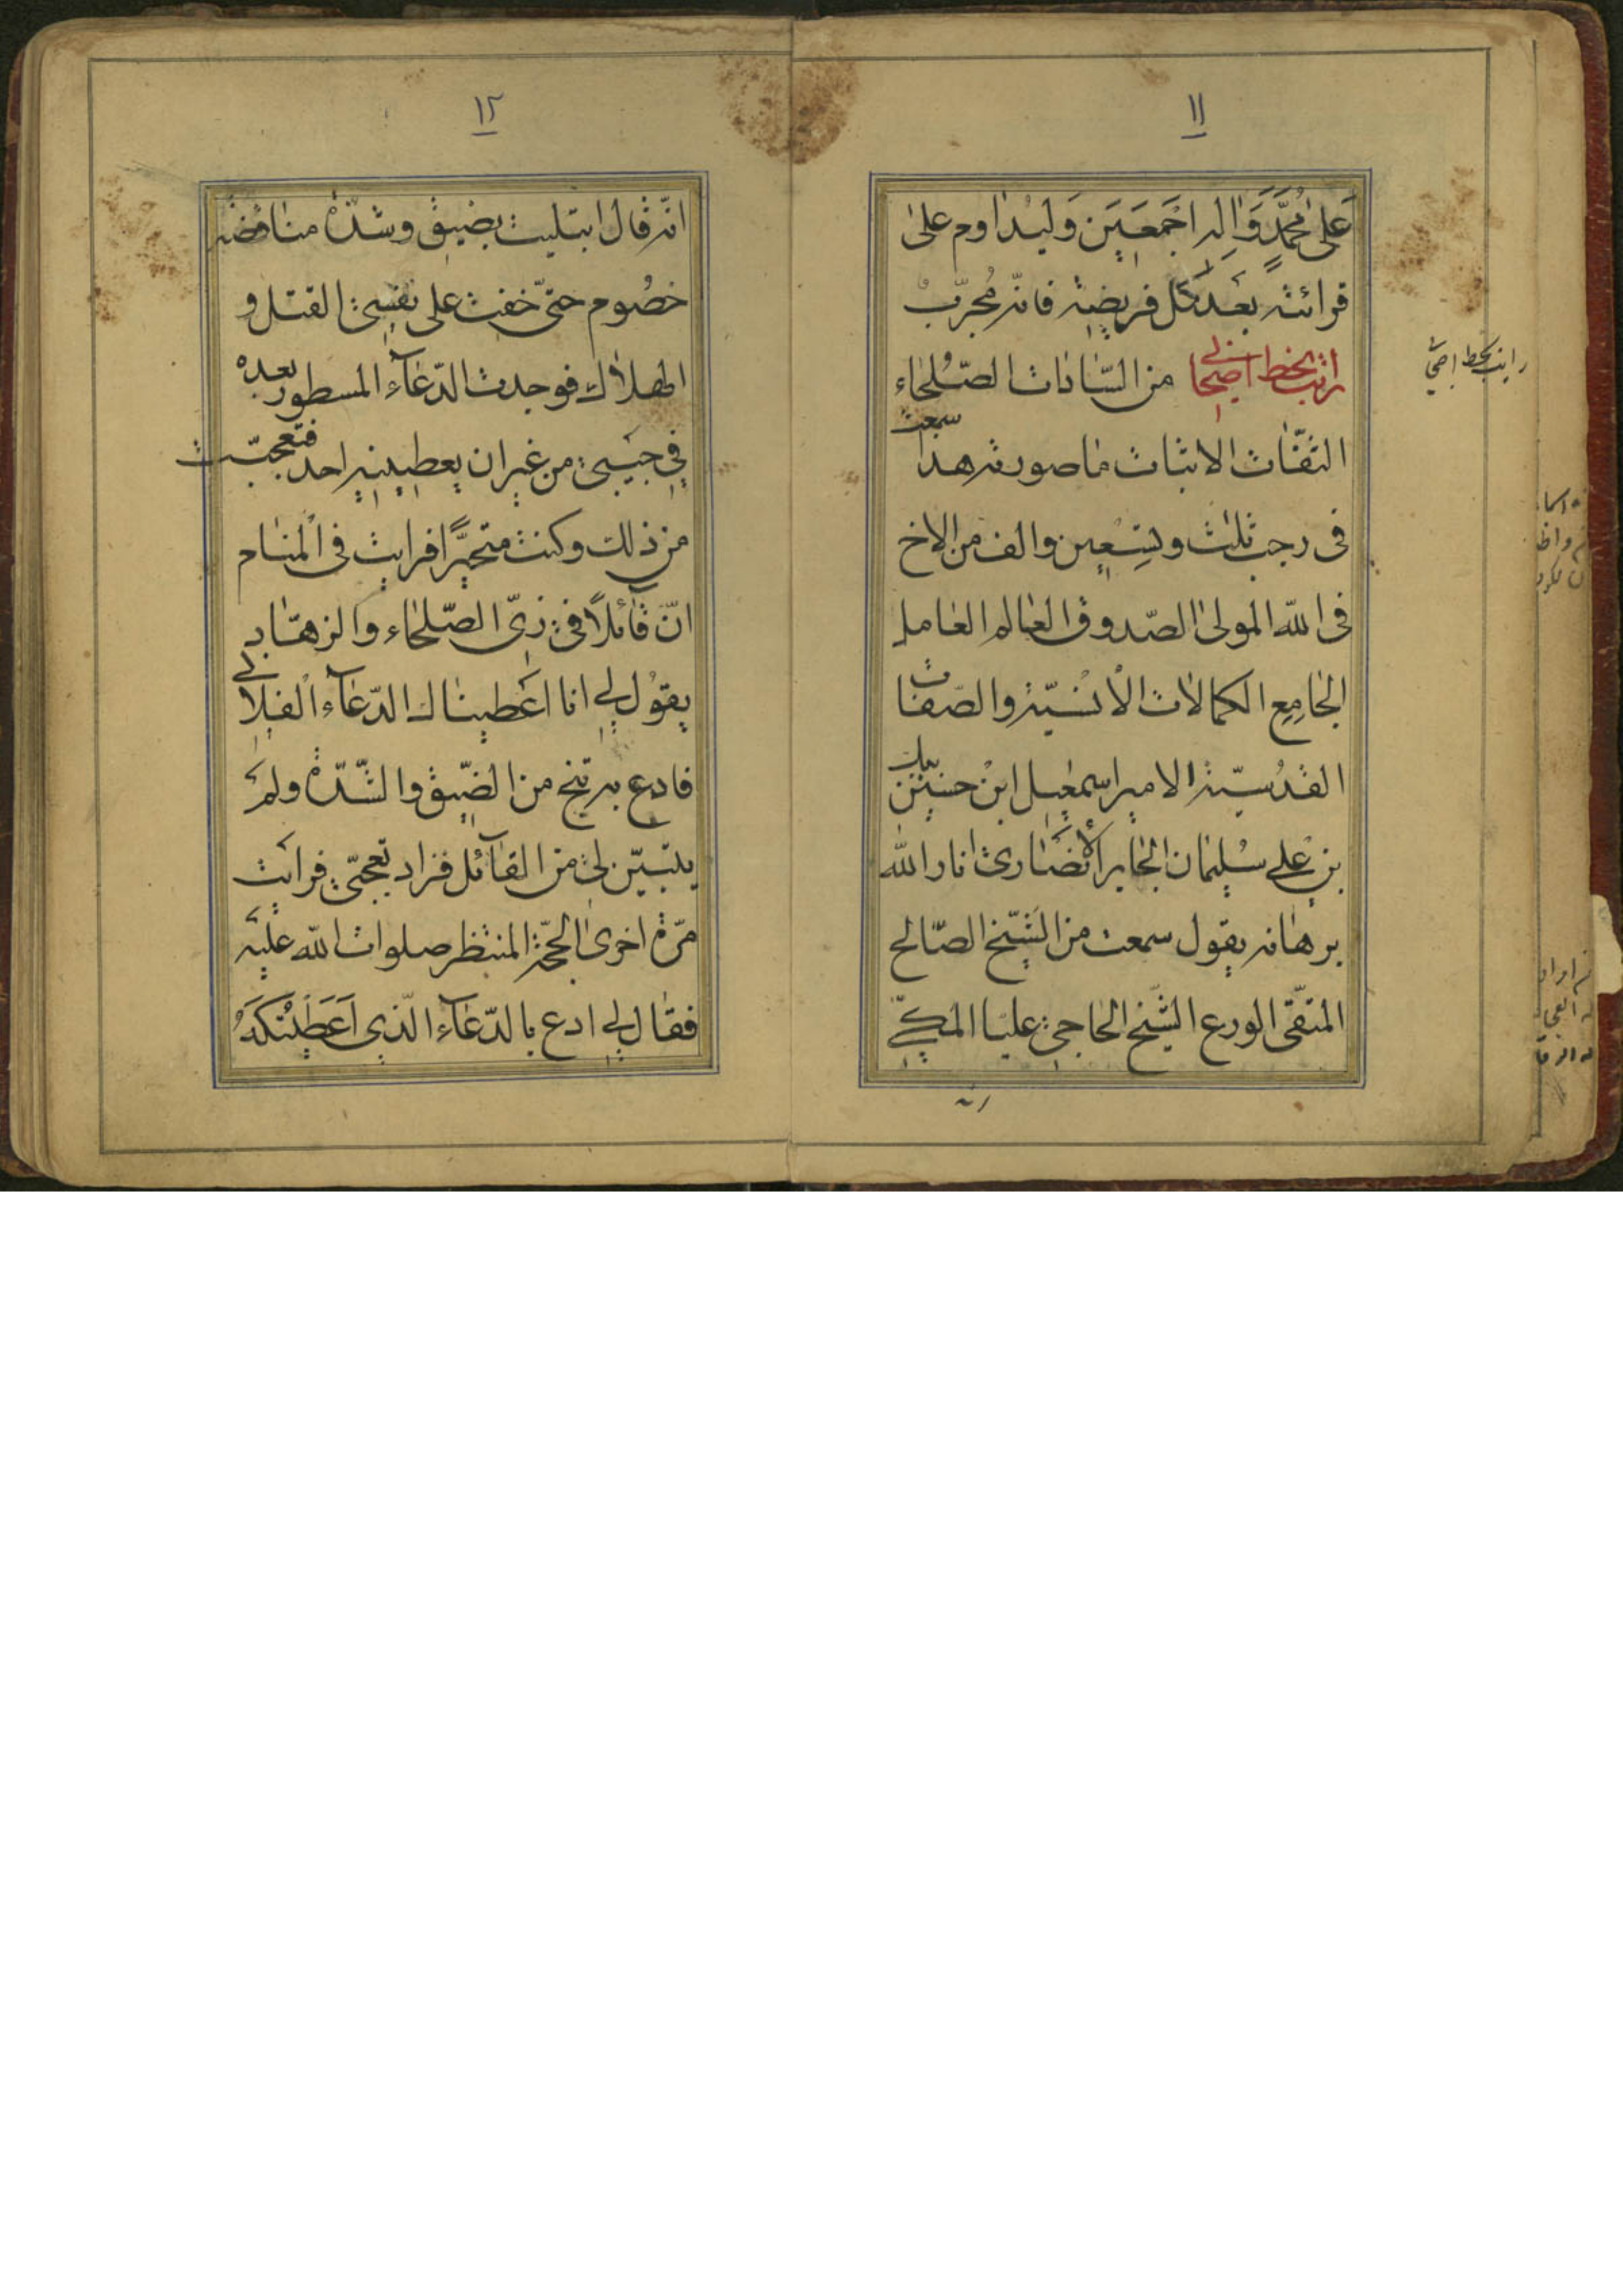 ١١
عَلىٰ مُحَمَّدٍ وَاٰلِهِ اَجْمَعَيَن وَليُداوم علىٰ
قرائته بعَد كلّ فريضة فانّه مُجرّبٌ
رايت بخط اصحابي من السّادات الصّلحاء
الثقات الاثبات ما صورته هذا سمعت
فى رجب ثلث وتسِعين والف من الاخ
فى اللّه المولى الصّدوق العالم العامل
الجامِع الكمالات الأنسيّة والصّفات
القدُسيّة الامير اسمٰعيل ابنْ حسين بيك
بن علي سُليمان الجابر الأنصارى انار اللّه
برهانه يقول سمعت من الشّيخ الصّالح
المتقّى الورع الشّيخ الحاجي عليّا المكّي
انّه
رايت بخط اصحابي
١٢
انّه قال ابتليت بضيق وشدّة مناقضة
خصُوم حتىّ خفت على نفسى القتل و
الهلاك فوجدت الدّعآء المسطور بعده
في جيَبي من غير ان يعطينيه احد فتعجّبت
من ذلك وكنت متحيّرًا فرايت فى المنام
انّ قائلًا في زىّ الصّلحاء والزهّاد
يقوُل لي انا اعَطيناك الدّعآء الفلاني
فادع به تنج من الضّيق والشّدّة ولم
يتبيّن لي من القآئل فزاد تعجّبي فرايت
مرّة اخرى الحجّة المنتظر صلوات اللّه عليَه
فقال لي ادع بالدّعآء الّذي اَعَطَيْتُكَهُ